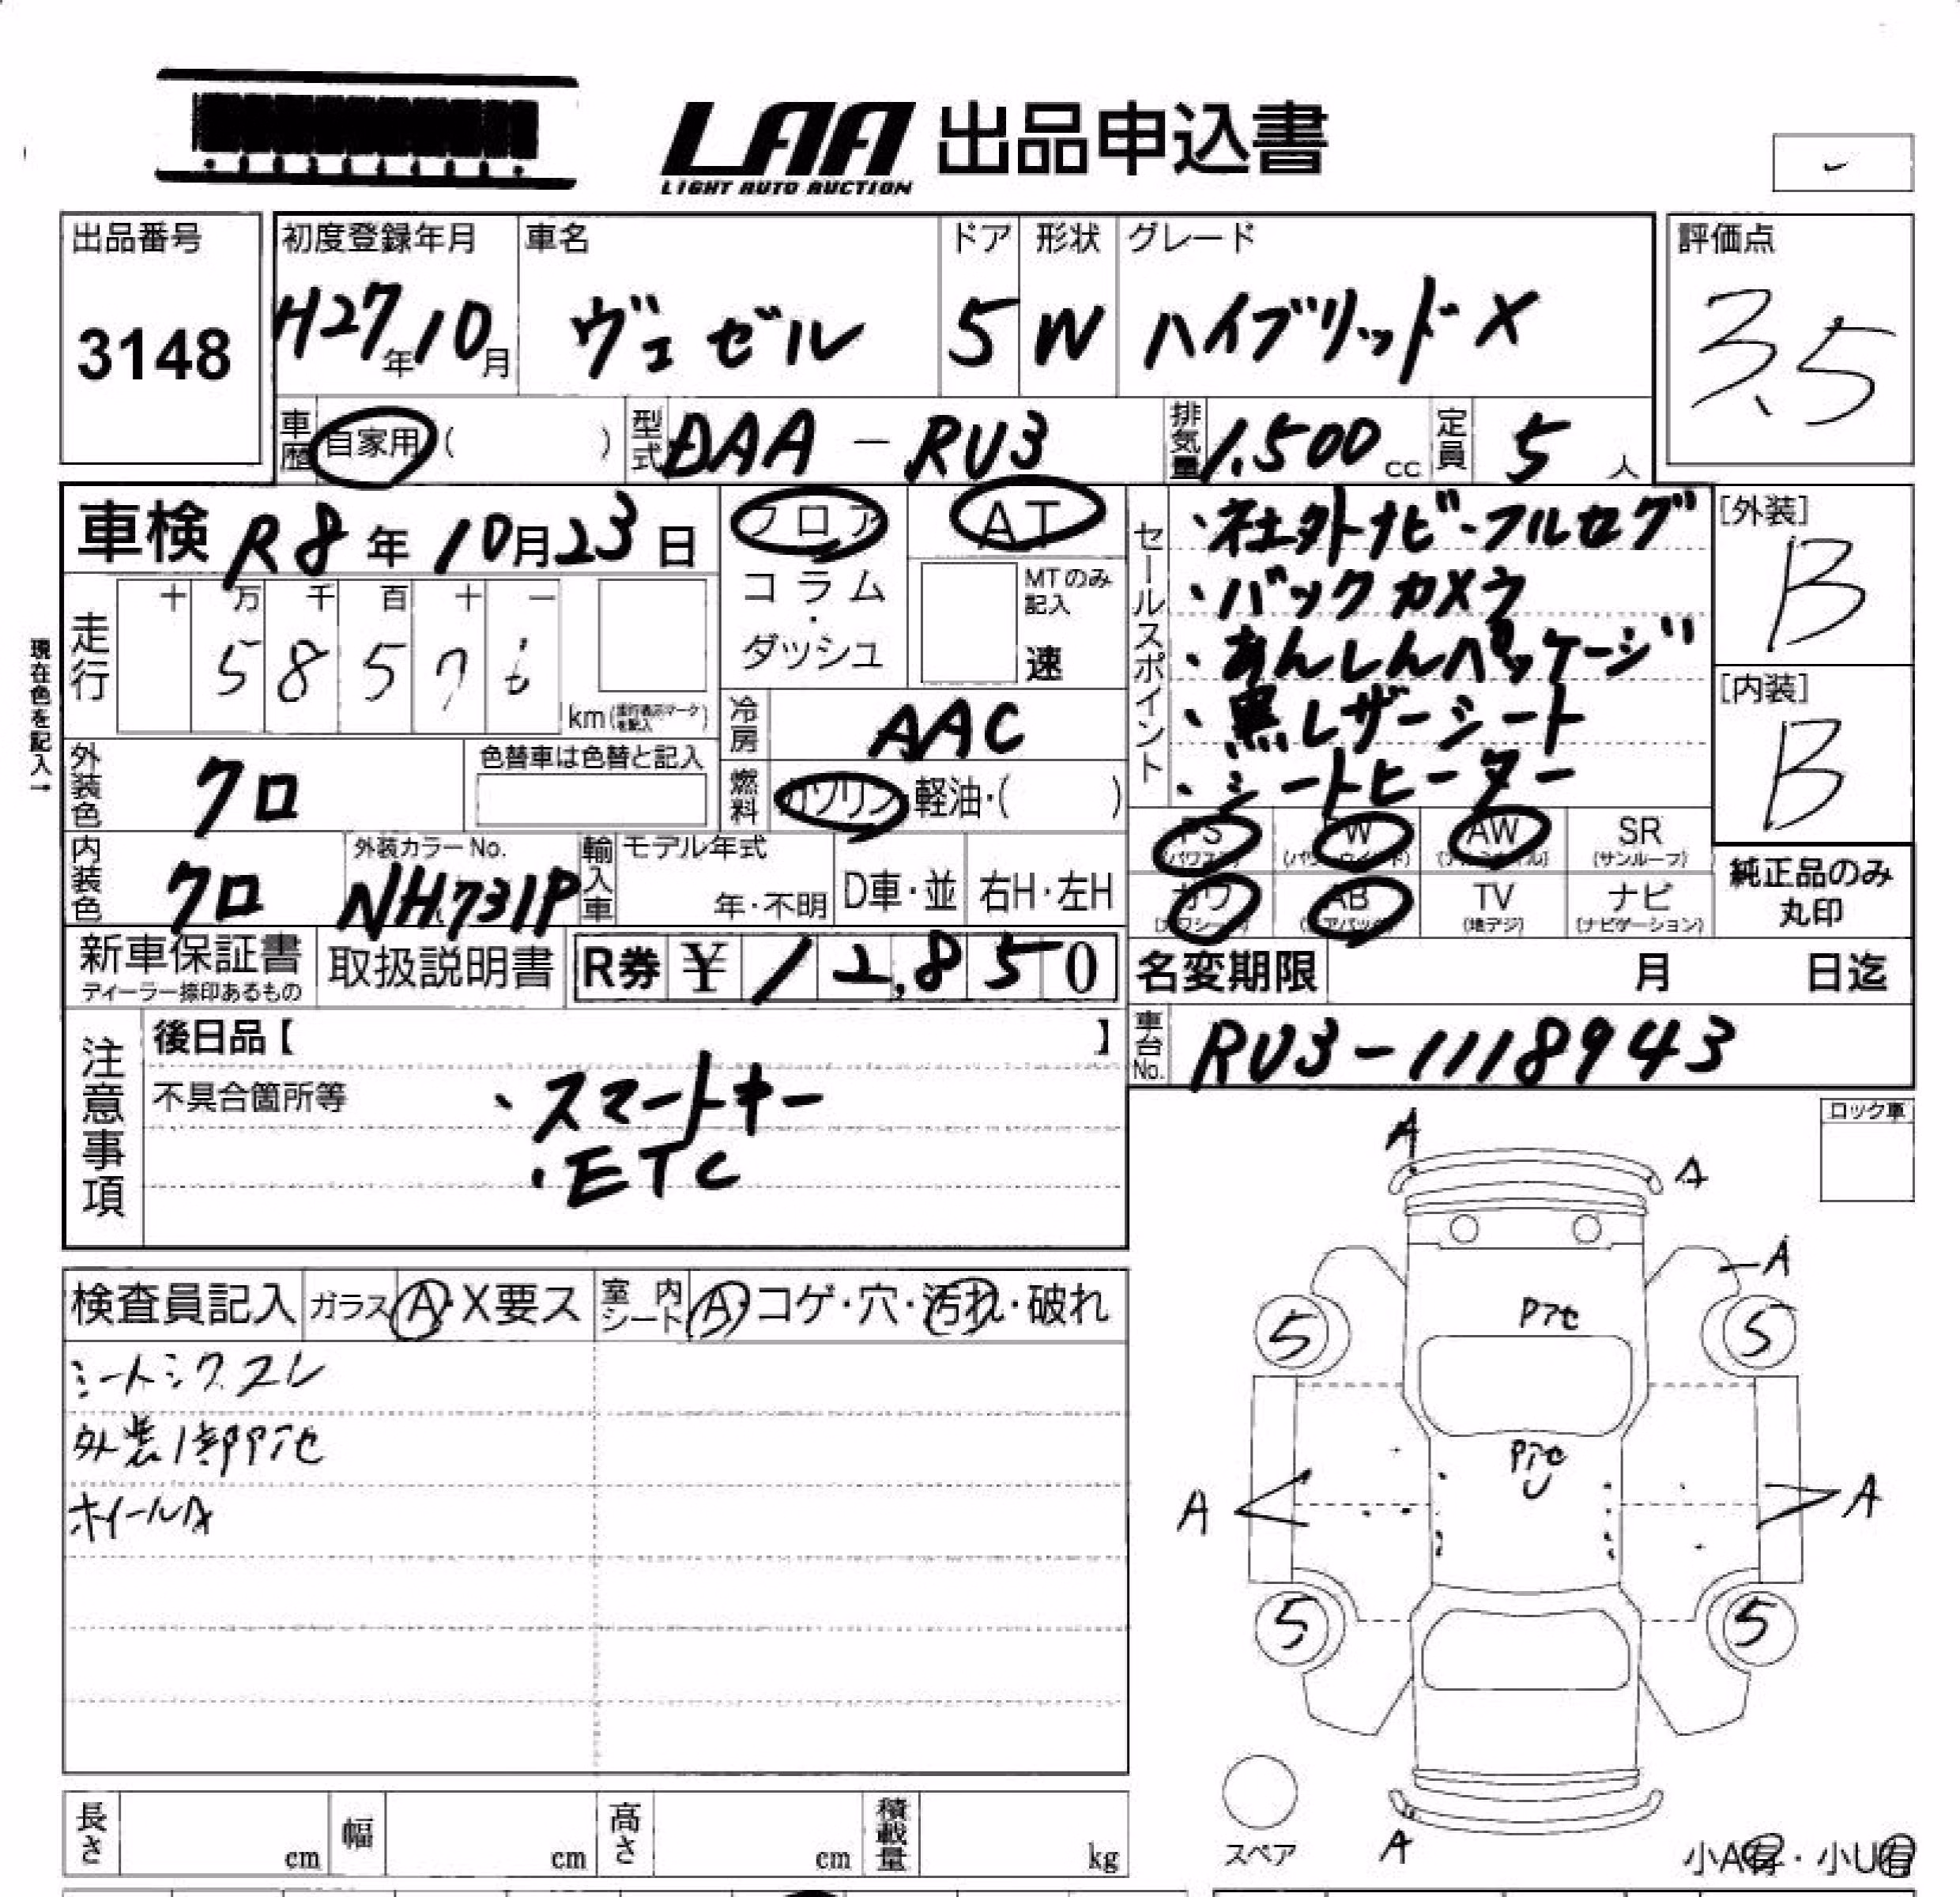 LAA 出品申込書
LIGHT AUTO AUCTION
出品番号
3148
初度登録年月
H27年10月
車名
ヴェゼル
ドア
5
形状
W
グレード
ハイブリッドX
評価点
3.5
車歴 自家用 ( )
型式 DAA-RU3
排気量 1,500 cc
定員 5 人
車検 R8年10月23日
フロア
コラム
・
ダッシュ
AT
MTのみ記入
速
セールスポイント
・社外ナビ・フルセグ
・バックカメラ
・あんしんパッケージ
・黒レザーシート
・シートヒーター
[外装]
B
[内装]
B
現在色を記入→
走行
十 万 千 百 十 一
5 8 5 7
km
冷房 AAC
燃料 ガソリン・軽油・( )
外装色 クロ
色替車は色替と記入
内装色 クロ
外装カラーNo.
NH731P
輸入車
モデル年式
年・不明
D車・並
右H・左H
PS (パワステ)
W (パワーウインド)
AW (アルミホイル)
SR (サンルーフ)
カワ (カワシート)
AB (エアバック)
TV (地デジ)
ナビ (ナビゲーション)
純正品のみ
丸印
新車保証書
ディーラー捺印あるもの
取扱説明書
R券 ¥ 12,850
名変期限 月 日迄
車台No. RU3-1118943
注意事項
後日品【 】
不具合箇所等
・スマートキー
・ETC
ロック車
検査員記入
ガラス A・X要ス
室内シート A・コゲ・穴・汚れ・破れ
シートシワ スレ
外装1部Pアセ
ホイールA
A
A
A
Pアセ
5
5
Pアセ
U
A
A
5
5
スペア
A
小A有・小U有
長さ cm
幅 cm
高さ cm
積載量 kg